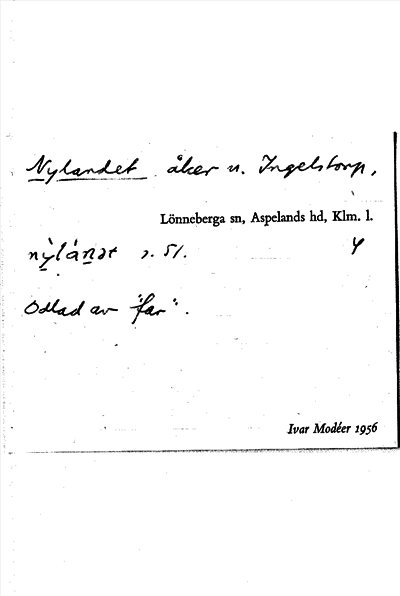 Nylandet åker u. Ingelstorp,
Lönneberga sn, Aspelands hd, Klm. l.
s. 51. 4
Odlad av "far".
Ivar Modéer 1956